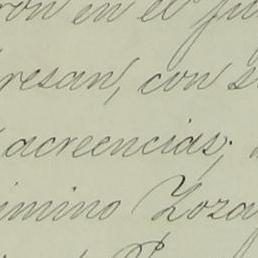 ron en el ju
resan, con s
acreencias;
imino Zoza